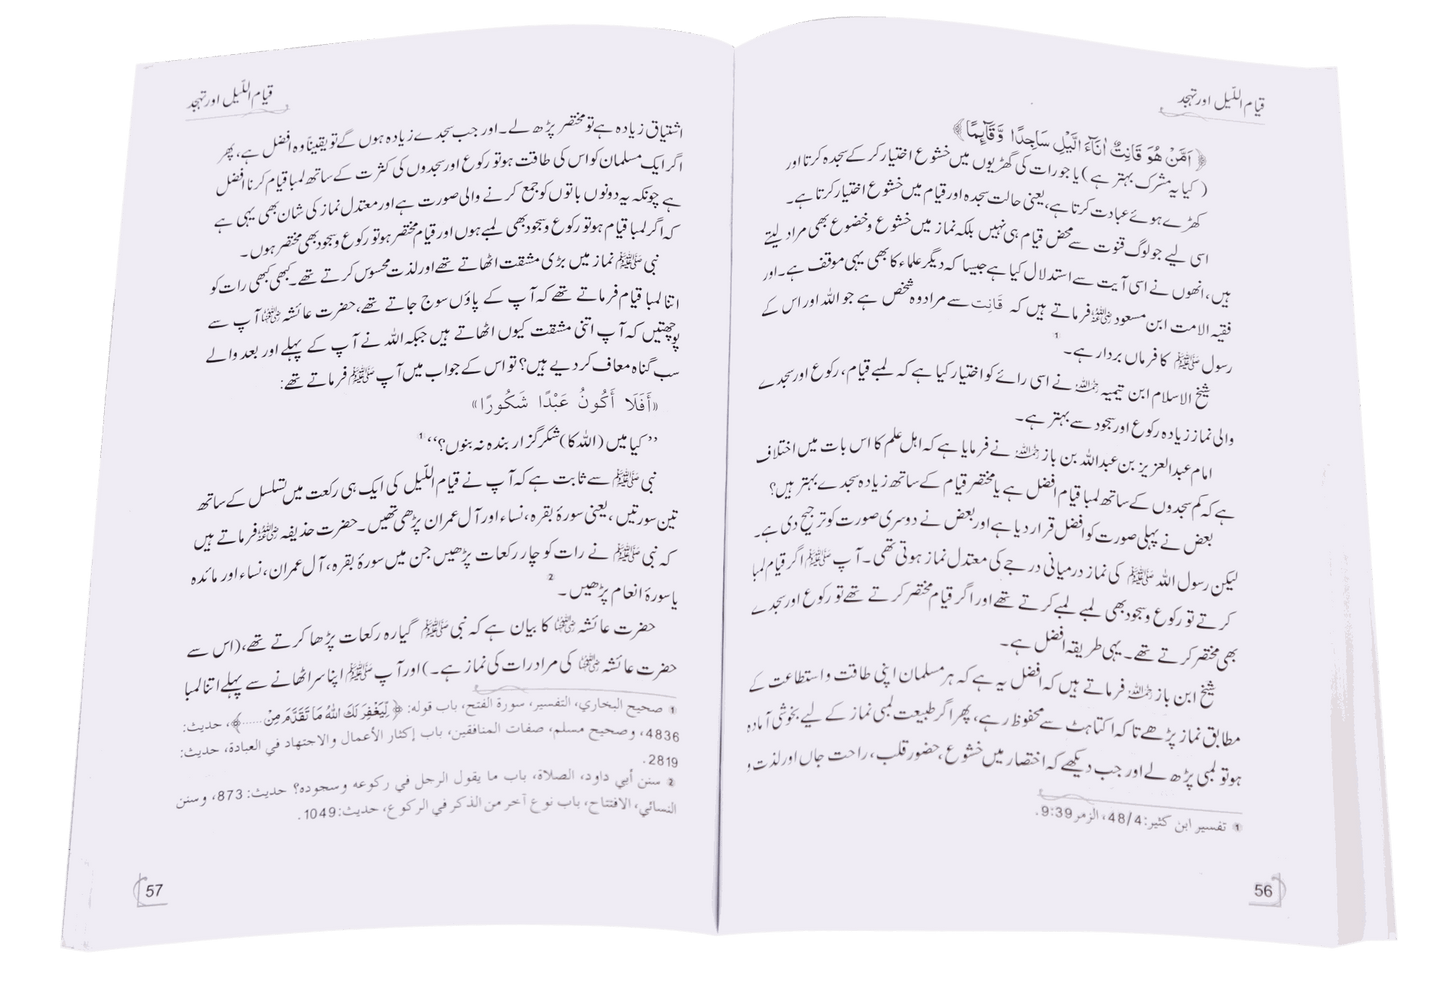 قیام اللّیل اور تہجد
﴿ اَمَّنْ هُوَ قَانِتٌ اٰنَآءَ الَّيْلِ سَاجِدًا وَّقَآئِمًا﴾
( کیا یہ مشرک بہتر ہے ) یا جو رات کی گھڑیوں میں خشوع اختیار کر کے سجدہ کرتا اور
کھڑے ہوئے عبادت کرتا ہے، یعنی حالت سجدہ اور قیام میں خشوع اختیار کرتا ہے۔
اسی لیے جو لوگ قنوت سے محض قیام ہی نہیں بلکہ نماز میں خشوع وخضوع بھی مراد لیتے
ہیں، انھوں نے اسی آیت سے استدلال کیا ہے جیسا کہ دیگر علماء کا بھی یہی موقف ہے۔ اور
فقیہ الامت ابن مسعود رضی اللہ عنہ فرماتے ہیں کہ قَانِت سے مراد وہ شخص ہے جو اللہ اور اس کے
رسول ﷺ کا فرماں بردار ہے۔ ¹
شیخ الاسلام ابن تیمیہ رحمہ اللہ نے اسی رائے کو اختیار کیا ہے کہ لمبے قیام، رکوع اور سجدے
والی نماز زیادہ رکوع اور سجود سے بہتر ہے۔
امام عبدالعزیز بن عبداللہ بن باز رحمہ اللہ نے فرمایا ہے کہ اھل علم کا اس بات میں اختلاف
ہے کہ کم سجدوں کے ساتھ لمبا قیام افضل ہے یا مختصر قیام کے ساتھ زیادہ سجدے بہتر ہیں؟
بعض نے پہلی صورت کو افضل قرار دیا ہے اور بعض نے دوسری صورت کو ترجیح دی ہے۔
لیکن رسول اللہ ﷺ کی نماز درمیانی درجے کی معتدل نماز ہوتی تھی۔ آپ ﷺ اگر قیام لمبا
کرتے تو رکوع وسجود بھی لمبے لمبے کرتے تھے اور اگر قیام مختصر کرتے تھے تو رکوع اور سجدے
بھی مختصر کرتے تھے۔ یہی طریقہ افضل ہے۔
شیخ ابن باز رحمہ اللہ فرماتے ہیں کہ افضل یہ ہے کہ ہر مسلمان اپنی طاقت و استطاعت کے
مطابق نماز پڑھے تا کہ اکتاہٹ سے محفوظ رہے، پھر اگر طبیعت لمبی نماز کے لیے بخوشی آمادہ
ہو تو لمبی پڑھ لے اور جب دیکھے کہ اختصار میں خشوع، حضور قلب، راحت جاں اور لذت و
① تفسیر ابن كثير: 48/4، الزمر 9:39.
56
قیام اللّیل اور تہجد
اشتیاق زیادہ ہے تو مختصر پڑھ لے۔ اور جب سجدے زیادہ ہوں گے تو یقیناً وہ افضل ہے، پھر
اگر ایک مسلمان کو اس کی طاقت ہو تو رکوع اور سجدوں کی کثرت کے ساتھ لمبا قیام کرنا افضل
ہے چونکہ یہ دونوں باتوں کو جمع کرنے والی صورت ہے اور معتدل نماز کی شان بھی یہی ہے
کہ اگر لمبا قیام ہو تو رکوع وسجود بھی لمبے ہوں اور قیام مختصر ہو تو رکوع وسجود بھی مختصر ہوں۔
نبی ﷺ نماز میں بڑی مشقت اٹھاتے تھے اور لذت محسوس کرتے تھے۔ کبھی کبھی رات کو
اتنا لمبا قیام فرماتے تھے کہ آپ کے پاؤں سوج جاتے تھے، حضرت عائشہ رضی اللہ عنہا آپ سے
پوچھتیں کہ آپ اتنی مشقت کیوں اٹھاتے ہیں جبکہ اللہ نے آپ کے پہلے اور بعد والے
سب گناہ معاف کر دیے ہیں؟ تو اس کے جواب میں آپ ﷺ فرماتے تھے:
«أَفَلَا أَكُونُ عَبْدًا شَكُورًا»
’’ کیا میں (اللہ کا) شکر گزار بندہ نہ بنوں؟‘‘ ¹
نبی ﷺ سے ثابت ہے کہ آپ نے قیام اللّیل کی ایک ہی رکعت میں تسلسل کے ساتھ
تین سورتیں، یعنی سورۂ بقرہ، نساء اور آل عمران پڑھی تھیں۔ حضرت حذیفہ رضی اللہ عنہ فرماتے ہیں
کہ نبی ﷺ نے رات کو چار رکعات پڑھیں جن میں سورۂ بقرہ، آل عمران، نساء اور مائدہ
یا سورۂ انعام پڑھیں ۔ ²
حضرت عائشہ رضی اللہ عنہا کا بیان ہے کہ نبی ﷺ گیارہ رکعات پڑھا کرتے تھے، (اس سے
حضرت عائشہ رضی اللہ عنہا کی مراد رات کی نماز ہے۔) اور آپ ﷺ اپنا سر اٹھانے سے پہلے اتنا لمبا
① صحيح البخاري، التفسير، سورة الفتح، باب قوله: ﴿ لِيَغْفِرَ لَكَ اللّٰهُ مَا تَقَدَّمَ مِنْ ......﴾، حديث:
4836، وصحيح مسلم، صفات المنافقين، باب إكثار الأعمال والاجتهاد في العبادة، حديث:
2819.
② سنن أبي داود، الصلاة، باب ما يقول الرجل في ركوعه وسجوده؟ حديث: 873، وسنن
النسائي، الافتتاح، باب نوع آخر من الذكر في الركوع، حديث: 1049.
57